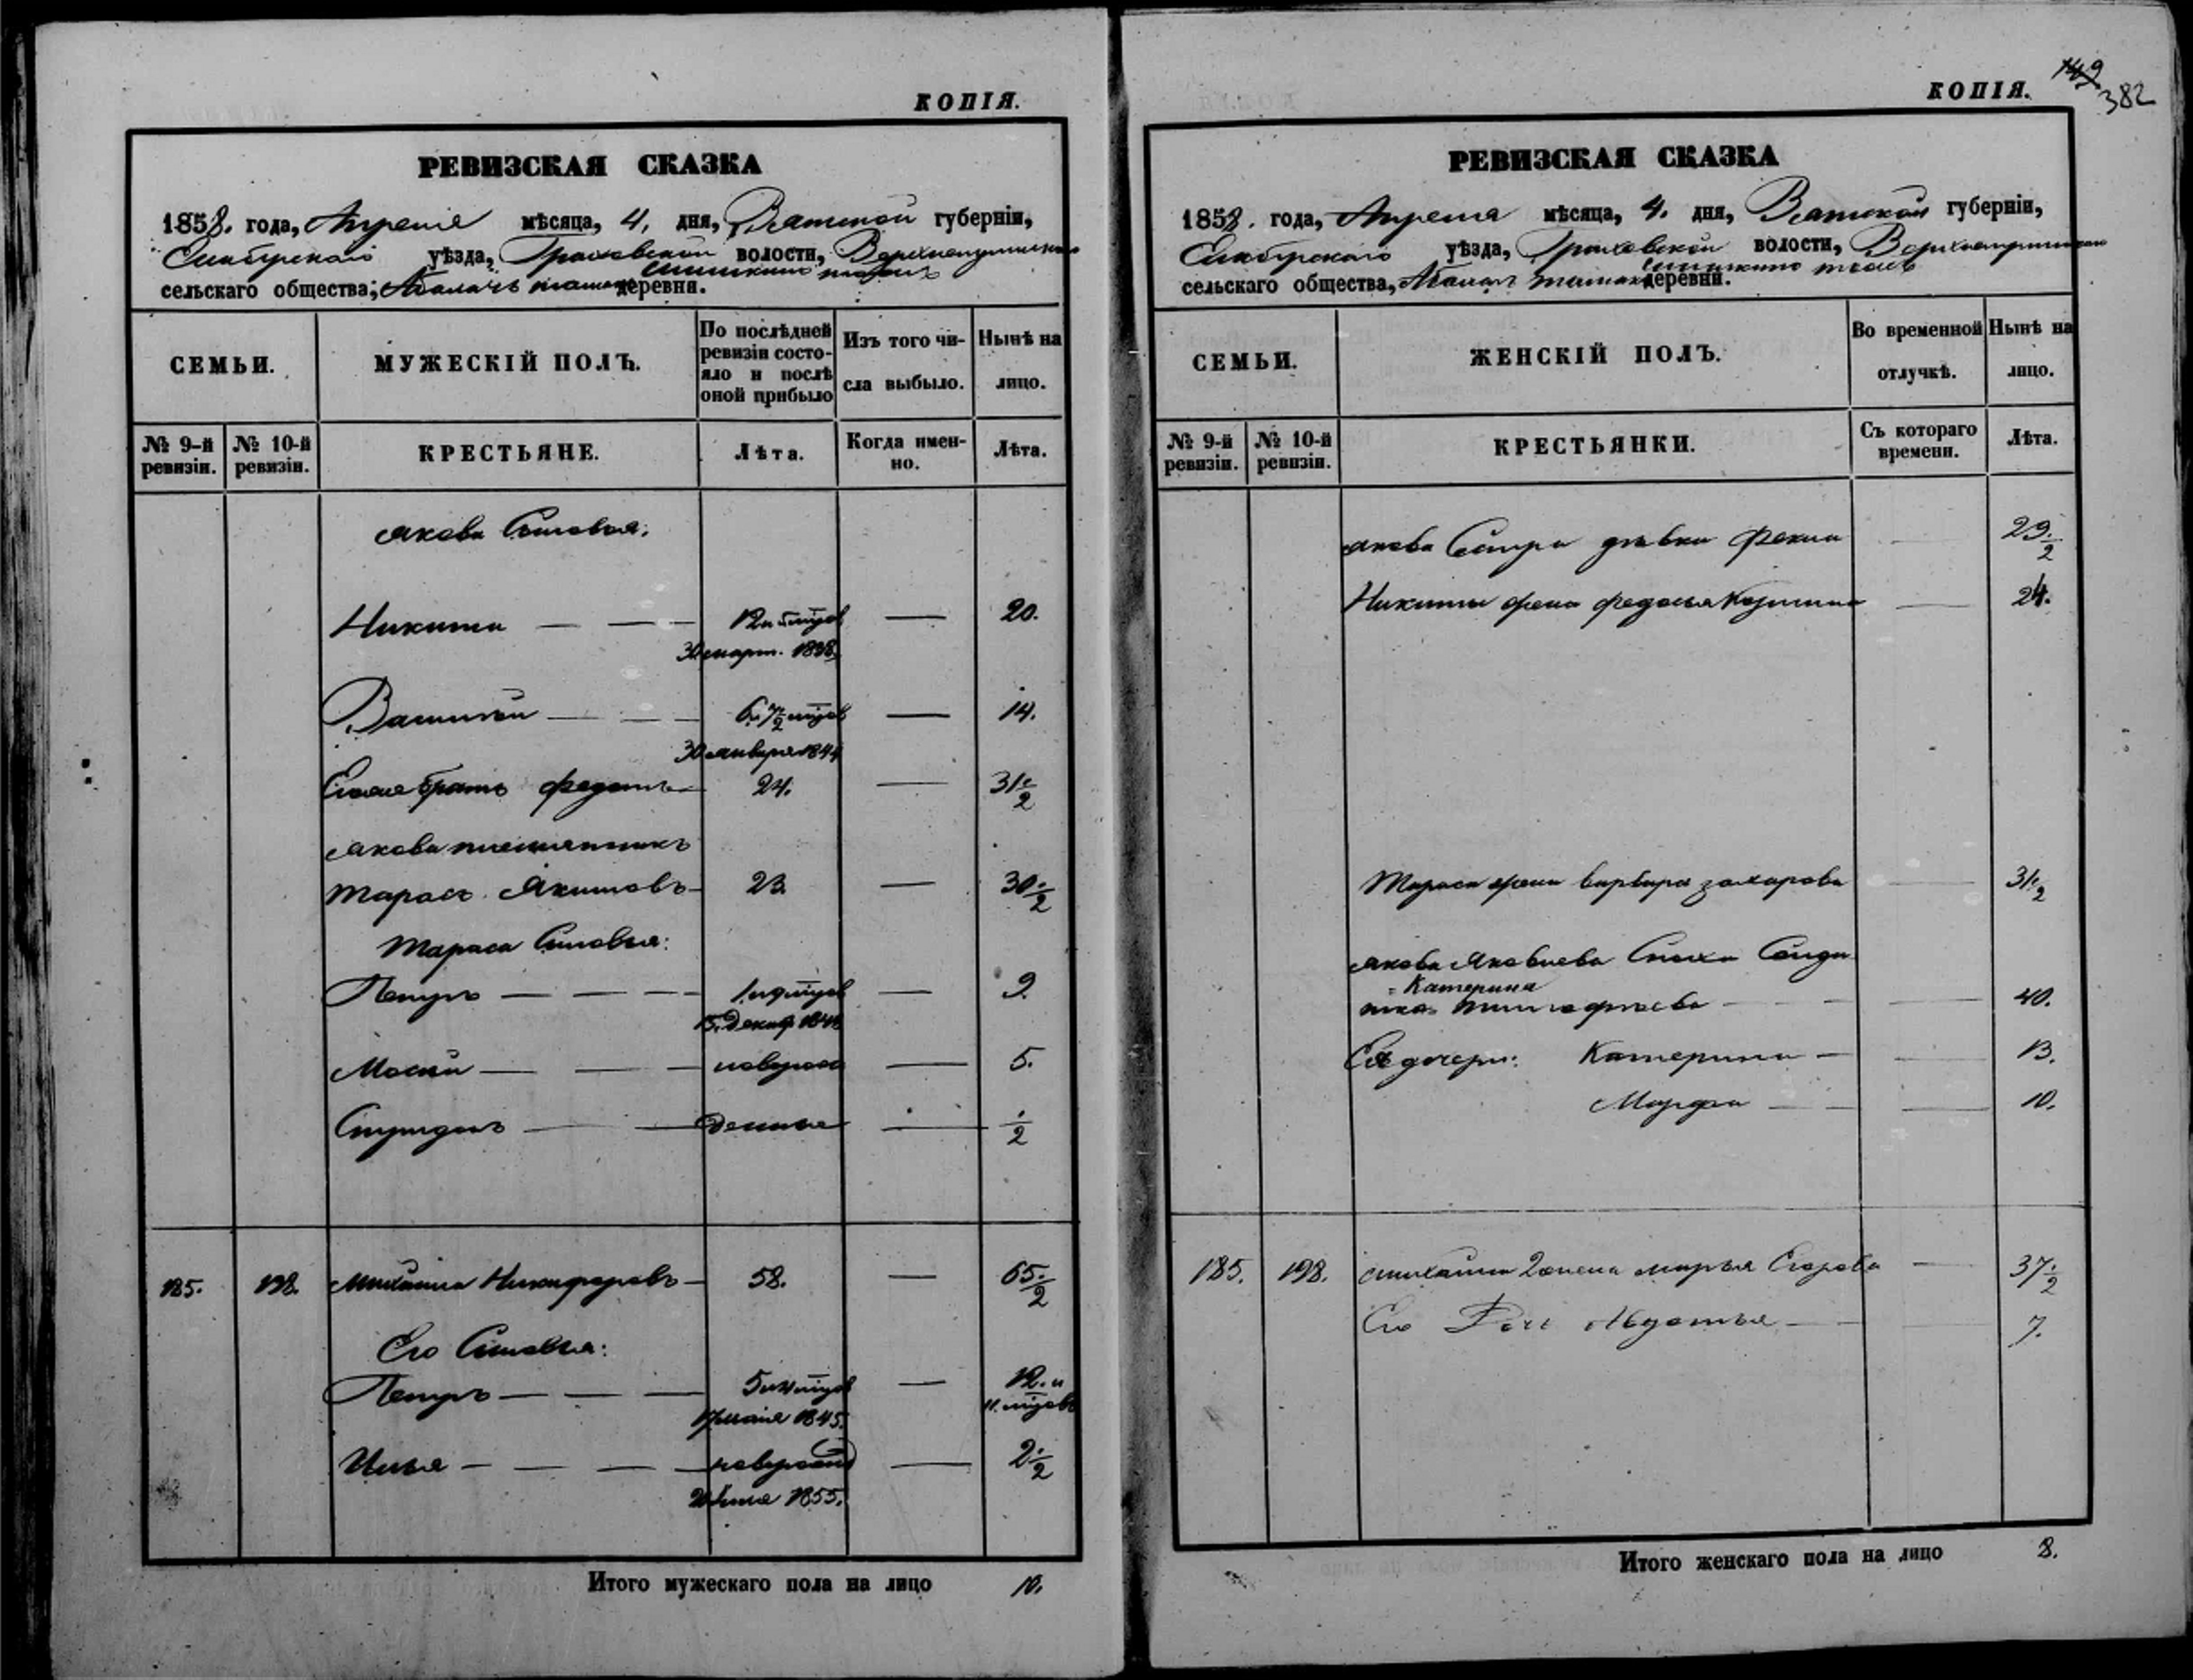 КОПІЯ.
РЕВИЗСКАЯ СКАЗКА
1858. года, Апреля мѣсяца, 4. дня, Вятской губерніи,
Елабугскаго уѣзда, Граховской волости,
сельскаго общества, деревни.
СЕМЬИ.
МУЖЕСКІЙ ПОЛЪ.
По послѣдней ревизіи состояло и послѣ оной прибыло
Изъ того числа выбыло.
Нынѣ на лицо.
№ 9-й ревизіи.
№ 10-й ревизіи.
КРЕСТЬЯНЕ.
Лѣта.
Когда именно.
Лѣта.
Якова Сыновья:
Никита — — — 12 — 20.
30 март. 1838.
Василей — — — 6 7/2 — 14.
30 января 1844
Егоже братъ Федотъ — 24. — 31 1/2
Якова племянникъ
Тарасъ Якимовъ — 23. — 30 1/2
Тараса Сыновья:
Петръ — — — — 9.
15. Декаб. 1848
Мосей — — — новорож — 5.
Спиридонъ — — денные — 1/2
185. 198. Михайла Никифоровъ — 58. — 65 1/2
Его Сыновья:
Петръ — — — 5 и 4 мцов — 12. и
11. мцовъ
17 маія 1845.
Илья — — — новорож — 2 1/2
1855.
Итого мужескаго пола на лицо 10.
КОПІЯ.
149
382
РЕВИЗСКАЯ СКАЗКА
1858. года, Апреля мѣсяца, 4. дня, Вятской губерніи,
Елабугскаго уѣзда, Граховской волости,
сельскаго общества, деревни.
СЕМЬИ.
ЖЕНСКІЙ ПОЛЪ.
Во временной отлучкѣ.
Нынѣ на лицо.
№ 9-й ревизіи.
№ 10-й ревизіи.
КРЕСТЬЯНКИ.
Съ котораго времени.
Лѣта.
Якова Сестра девка Фекла — 29 1/2
Никиты жена Федосья Козмина — 24.
Тараса жена Варвара Захарова — 31 1/2
Якова Яковлева Сноха Солда
Катерина
тка Тимофѣева — — 40.
Ея дочери: Катерина — — 13.
Марфа — — — 10.
185. 198. Михайла 2 жена Марья Егорова — 37 1/2
Его Дочь Авдотья — — 7.
Итого женскаго пола на лицо 8.